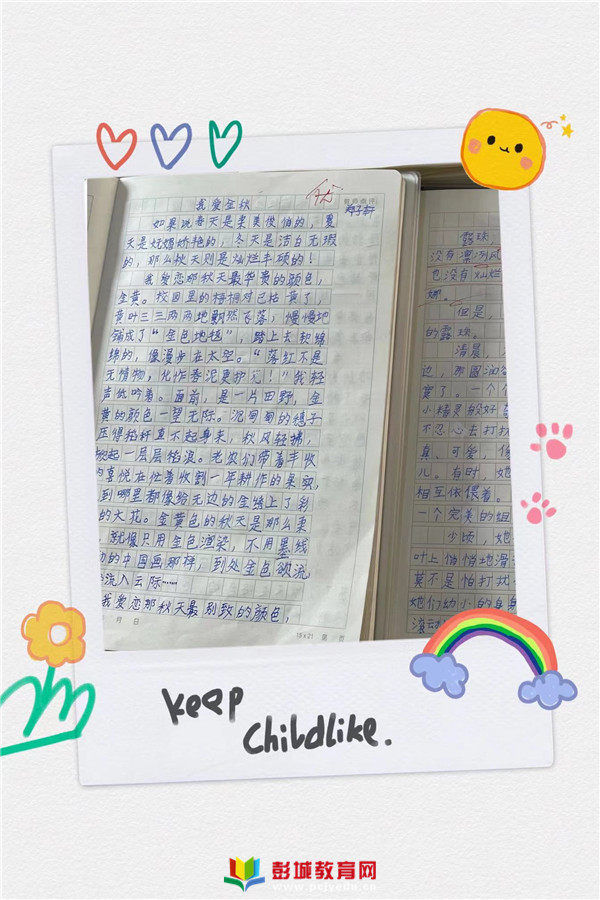 我爱金秋
如果说春天是柔美俊俏的，夏
天是妩媚娇艳的，冬天是洁白无瑕
的，那么秋天则是灿烂丰硕的！
我爱恋那秋天最华贵的颜色，
金黄。校园里的梧桐树已枯黄了，
黄叶三三两两地飘然飞落；慢慢地
铺成了“金色地毯”，踏上去软绵
绵的，像漫步在太空。“落红不是
无情物，化作春泥更护花！”我轻
声低吟着。面前，是一片田野，金
黄的颜色一望无际。沉甸甸的穗子
压得稻秆直不起身来，秋风轻拂，
掀起一层层稻浪。老农们带着丰收
的喜悦在忙着收割一年耕作的果实，
到哪里都像给无边的金毯上了彩
的大花。金黄色的秋天是那么柔
，就像只用金色渲染，不用墨线
的中国画那样，到处金色欲流
流入云际……
我爱恋那秋天最别致的颜色，
月 日
18×21 第 页
优
露珠
没有凛冽风
也没有灿烂
娜。
但是，
的露珠。
清晨，
边，那圆润
小精灵的好
不忍心去打扰
真、可爱，
儿。有时，她
相互依偎着。
一个完美的组
少顷，她
叶上悄悄地滑
莫不是怕打扰
她们幼小的身
keep
childlike.
彭城教育网
www.pcjyedu.cn